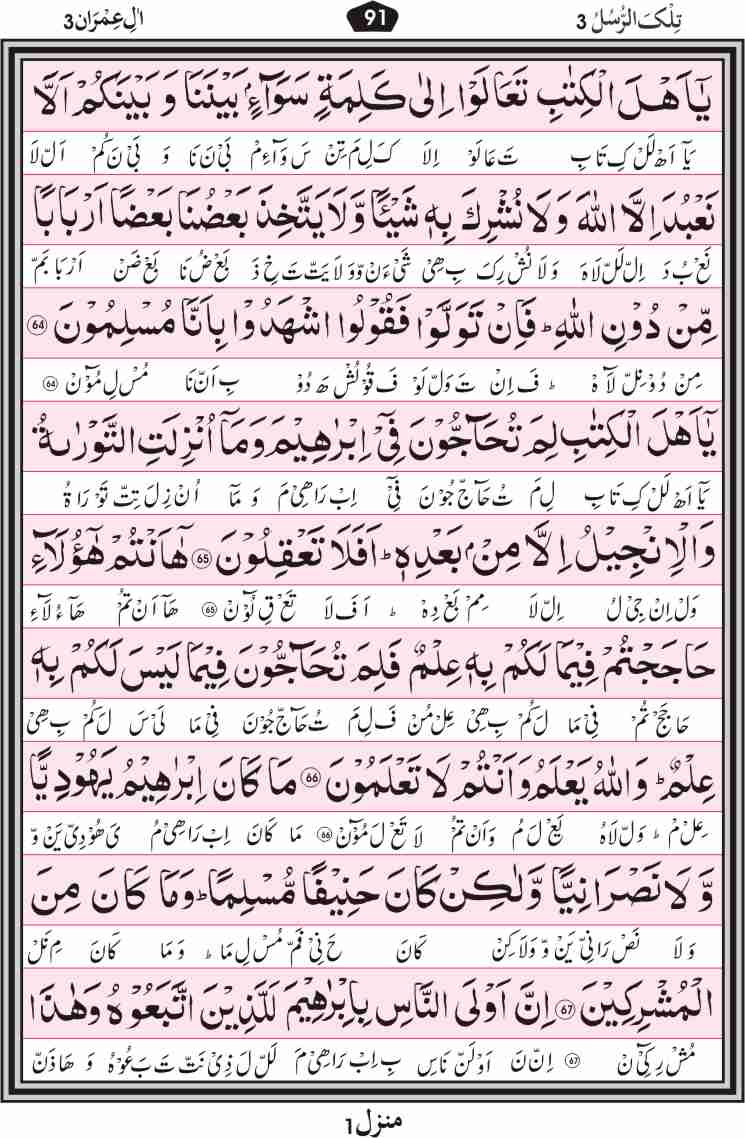 تِلْكَ الرُّسُلُ 3
91
اٰلِ عِمْرَان 3
يٰٓاَهْلَ الْكِتٰبِ تَعَالَوْا اِلٰى كَلِمَةٍ سَوَآءٍۢ بَيْنَنَا وَ بَيْنَكُمْ اَلَّا
يَآ اَهْ لَلْ كِ تَا بِ تَ عَا لَوْ اِلَا كَ لِ مَ تِنْ سَ وَآءِ مْ بَىْ نَ نَا وَ بَىْ نَ كُمْ اَلْ لَا
نَعْبُدَ اِلَّا اللّٰهَ وَ لَا نُشْرِكَ بِهٖ شَيْئًا وَّ لَا يَتَّخِذَ بَعْضُنَا بَعْضًا اَرْبَابًا
نَعْ بُ دَ اِلْ لَلْ لَاهَ وَ لَا نُشْ رِكَ بِ هِىْ شَىْ ءَ نْ وْ وَ لَا يَتْ تَ خِ ذَ بَعْ ضُ نَا بَعْ ضَنْ اَرْ بَا بَمْ
مِّنْ دُوْنِ اللّٰهِ ؕ فَاِنْ تَوَلَّوْا فَقُوْلُوا اشْهَدُوْا بِاَنَّا مُسْلِمُوْنَ 64
مِنْ دُوْ نِلْ لَا هْ ؕ فَ اِنْ تَ وَلْ لَوْ فَ قُوْ لُشْ هَ دُوْ بِ اَنْ نَا مُسْ لِ مُوْٓنْ 64
يٰٓاَهْلَ الْكِتٰبِ لِمَ تُحَآجُّوْنَ فِىْٓ اِبْرٰهِيْمَ وَ مَآ اُنْزِلَتِ التَّوْرٰىةُ
يَآ اَهْ لَلْ كِ تَا بِ لِ مَ تُ حَآجْ جُوْنَ فِىْٓ اِبْ رَا هِىْ مَ وَ مَآ اُنْ زِ لَ تِتْ تَوْ رَا ةُ
وَ الْاِنْجِيْلُ اِلَّا مِنْۢ بَعْدِهٖ ؕ اَفَلَا تَعْقِلُوْنَ 65 هٰۤاَنْتُمْ هٰٓؤُلَآءِ
وَلْ اِنْ جِىْ لُ اِلْ لَا مِمْ بَعْ دِهْ ؕ اَ فَ لَا تَعْ قِ لُوْٓنْ 65 هَآ اَنْ تُمْ هَآ ءُ لَآءِ
حَاجَجْتُمْ فِيْمَا لَكُمْ بِهٖ عِلْمٌ فَلِمَ تُحَآجُّوْنَ فِيْمَا لَيْسَ لَكُمْ بِهٖ
حَا جَجْ تُمْ فِىْ مَا لَ كُمْ بِ هِىْ عِلْ مُنْ فَ لِ مَ تُ حَآجْ جُوْنَ فِىْ مَا لَىْ سَ لَ كُمْ بِ هِىْ
عِلْمٌ ؕ وَ اللّٰهُ يَعْلَمُ وَ اَنْتُمْ لَا تَعْلَمُوْنَ 66 مَا كَانَ اِبْرٰهِيْمُ يَهُوْدِيًّا
عِلْ مْ ؕ وَلْ لَاهُ يَعْ لَ مُ وَ اَنْ تُمْ لَا تَعْ لَ مُوْٓنْ 66 مَا كَانَ اِبْ رَا هِىْ مُ يَ هُوْ دِىْ يَنْ وْ
وَّ لَا نَصْرَانِيًّا وَّ لٰكِنْ كَانَ حَنِيْفًا مُّسْلِمًا ؕ وَ مَا كَانَ مِنَ
وَ لَا نَصْ رَا نِىْ يَنْ وْ وَ لَا كِنْ كَانَ حَ نِىْ فَمْ مُسْ لِ مَا ؕ وَ مَا كَانَ مِ نَلْ
الْمُشْرِكِيْنَ 67 اِنَّ اَوْلَى النَّاسِ بِاِبْرٰهِيْمَ لَلَّذِيْنَ اتَّبَعُوْهُ وَ هٰذَا
مُشْ رِ كِىْٓ نْ 67 اِنْ نَ اَوْ لَنْ نَاسِ بِ اِبْ رَا هِىْ مَ لَلْ لَ ذِىْ نَتْ تَ بَ عُوْهُ وَ هَا ذَنْ
منزل 1